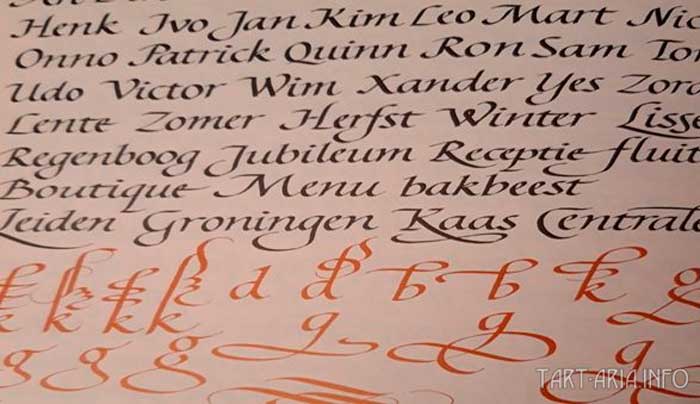 Henk Ivo Jan Kim Leo Mart
Onno Patrick Quinn Ron Sam
Udo Victor Wim Xander Yes
Lente Zomer Herfst Winter
Regenboog Jubileum Receptie fluit
Boutique Menu bakbeest
Leiden Groningen Kaas Centrale
d d b b k
k k k k g g g
g g g
TART-ARIA.INFO